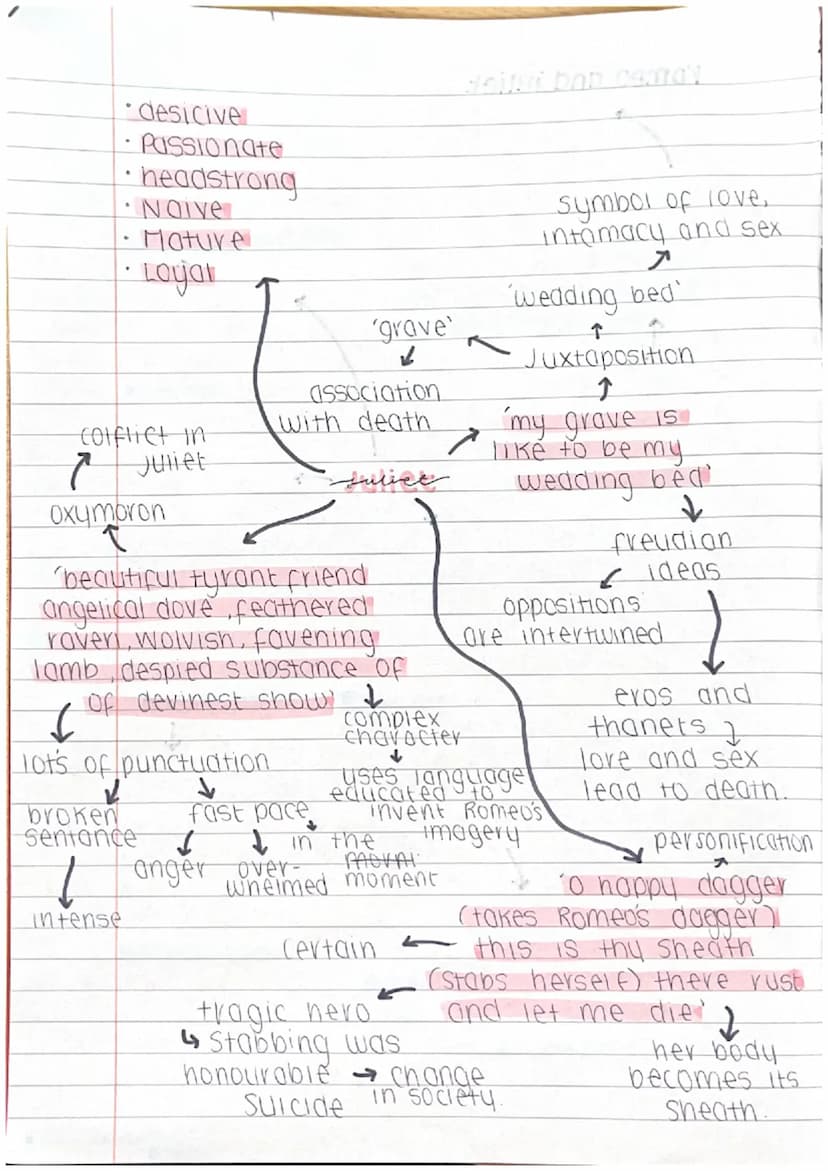 · desicive
· Passionate
· headstrong
· Naive
· Mature
· Loyal
symbol of love,
intamacy and sex
'wedding bed'
'grave'
Juxtaposition
association
with death
'my grave is
like to be my
wedding bed'
Juliet
colflict in
Juliet
oxymoron
freudian
ideas
oppositions
are intertwined
eros and
thanets
love and sex
lead to death.
'beautiful tyrant friend
angelical dove, feathered
raven, wolvish, favening
lamb, despied substance of
of devinest show'
complex
character
uses language
educated to
invent Romeo's
imagery
lots of punctuation
broken
sentance
intense
fast pace
anger
over-
whelmed
in the
moment
personification
'O happy dagger
(takes Romeo's dagger)
this is thy sheath
(stabs herself) there rust
and let me die'
certain
tragic hero
↳ Stabbing was
honourable → change
suicide in society.
her body
becomes its
sheath.